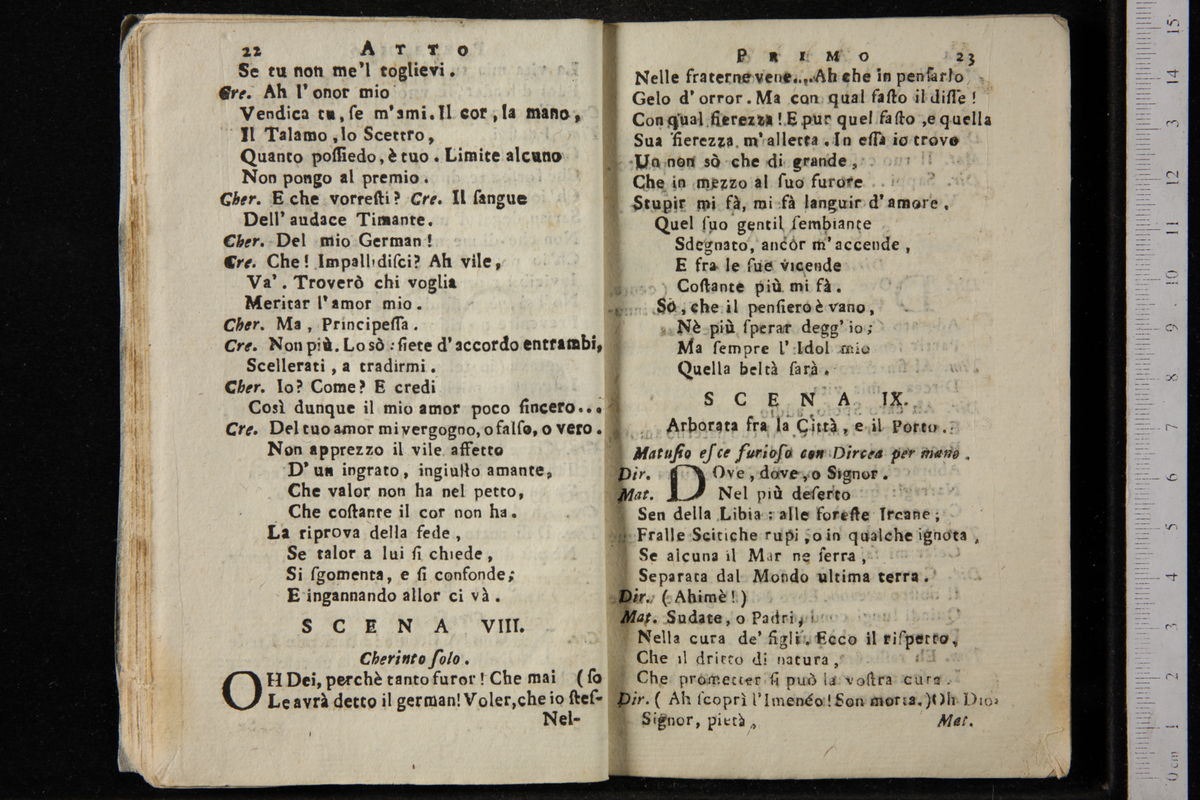 22 ATTO
Se tu non me'l toglievi.
Cre. Ah l'onor mio
Vendica tu, ſe m'ami. Il cor, la mano,
Il Talamo, lo Scettro,
Quanto poſſiedo, è tuo. Limite alcuno
Non pongo al premio.
Cher. E che vorreſti? Cre. Il ſangue
Dell' audace Timante.
Cher. Del mio German!
Cre. Che! Impallidiſci? Ah vile,
Va'. Troverò chi voglia
Meritar l'amor mio.
Cher. Ma, Principeſſa.
Cre. Non più. Lo sò: ſiete d'accordo entrambi,
Scellerati, a tradirmi.
Cher. Io? Come? E credi
Così dunque il mio amor poco ſincero...
Cre. Del tuo amor mi vergogno, o falſo, o vero.
Non apprezzo il vile affetto
D'un ingrato, ingiuſto amante,
Che valor non ha nel petto,
Che coſtante il cor non ha.
La riprova della fede,
Se talor a lui ſi chiede,
Si ſgomenta, e ſi confonde;
E ingannando allor ci và.
SCENA VIII.
Cherinto ſolo.
OH Dei, perchè tanto furor! Che mai (ſo
Le avrà detto il german! Voler, che io ſteſ-
Nel-
PRIMO 23
Nelle fraterne vene.... Ah che in penſarlo
Gelo d'orror. Ma con qual faſto il diſſe!
Con qual fierezza! E pur quel faſto, e quella
Sua fierezza m'alletta. In eſſa io trovo
Un non sò che di grande,
Che in mezzo al ſuo furore
Stupir mi fà, mi fà languir d'amore.
Quel ſuo gentil ſembiante
Sdegnato, ancòr m'accende,
E fra le ſue vicende
Coſtante più mi fà.
Sò, che il penſiero è vano,
Nè più ſperar degg' io;
Ma ſempre l' Idol mio
Quella beltà ſarà.
SCENA IX.
Arborata fra la Città, e il Porto.
Matuſio eſce furioſo con Dircea per mano.
Dir. DOve, dove, o Signor.
Mat. Nel più deſerto
Sen della Libia: alle foreſte Ircane;
Fralle Scitiche rupi, o in qualche ignota,
Se alcuna il Mar ne ſerra,
Separata dal Mondo ultima terra.
Dir. (Ahimè!)
Mat. Sudate, o Padri,
Nella cura de' figli. Ecco il riſpetto,
Che il dritto di natura,
Che prometter ſi può la voſtra cura.
Dir. (Ah ſcoprì l'Imenéo! Son morta.) Oh Dio!
Signor, pietà,
Mat.